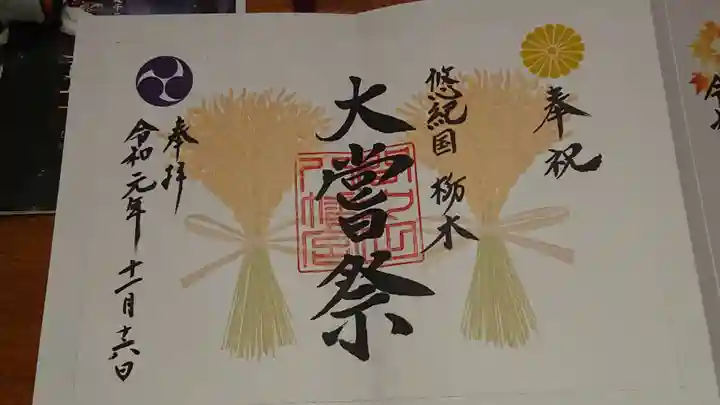 奉祝
悠紀国 栃木
大嘗祭
奉拝
令和元年 十一月十六日